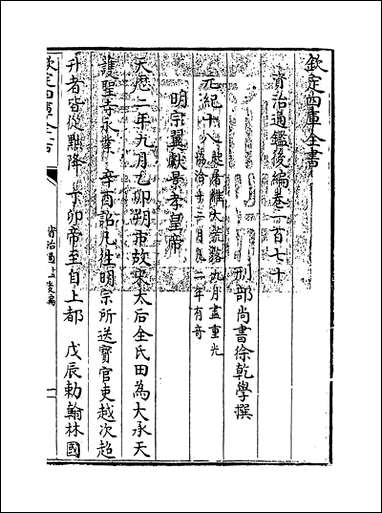 欽定四庫全書
資治通鑑後編卷一百七十
刑部尚書徐乾學撰
元紀十八
起屠維大荒落九月盡重光
協洽十二月凡二年有奇
明宗翼獻景孝皇帝
天歷二年九月乙卯朔市故宋太后全氏田為大承天
護聖寺永業 辛酉詔凡往明宗所送寶官吏越次超
升者皆從黜降 丁卯帝至自上都 戊辰勅翰林國
欽定四庫全書
資治通鑑後編
一